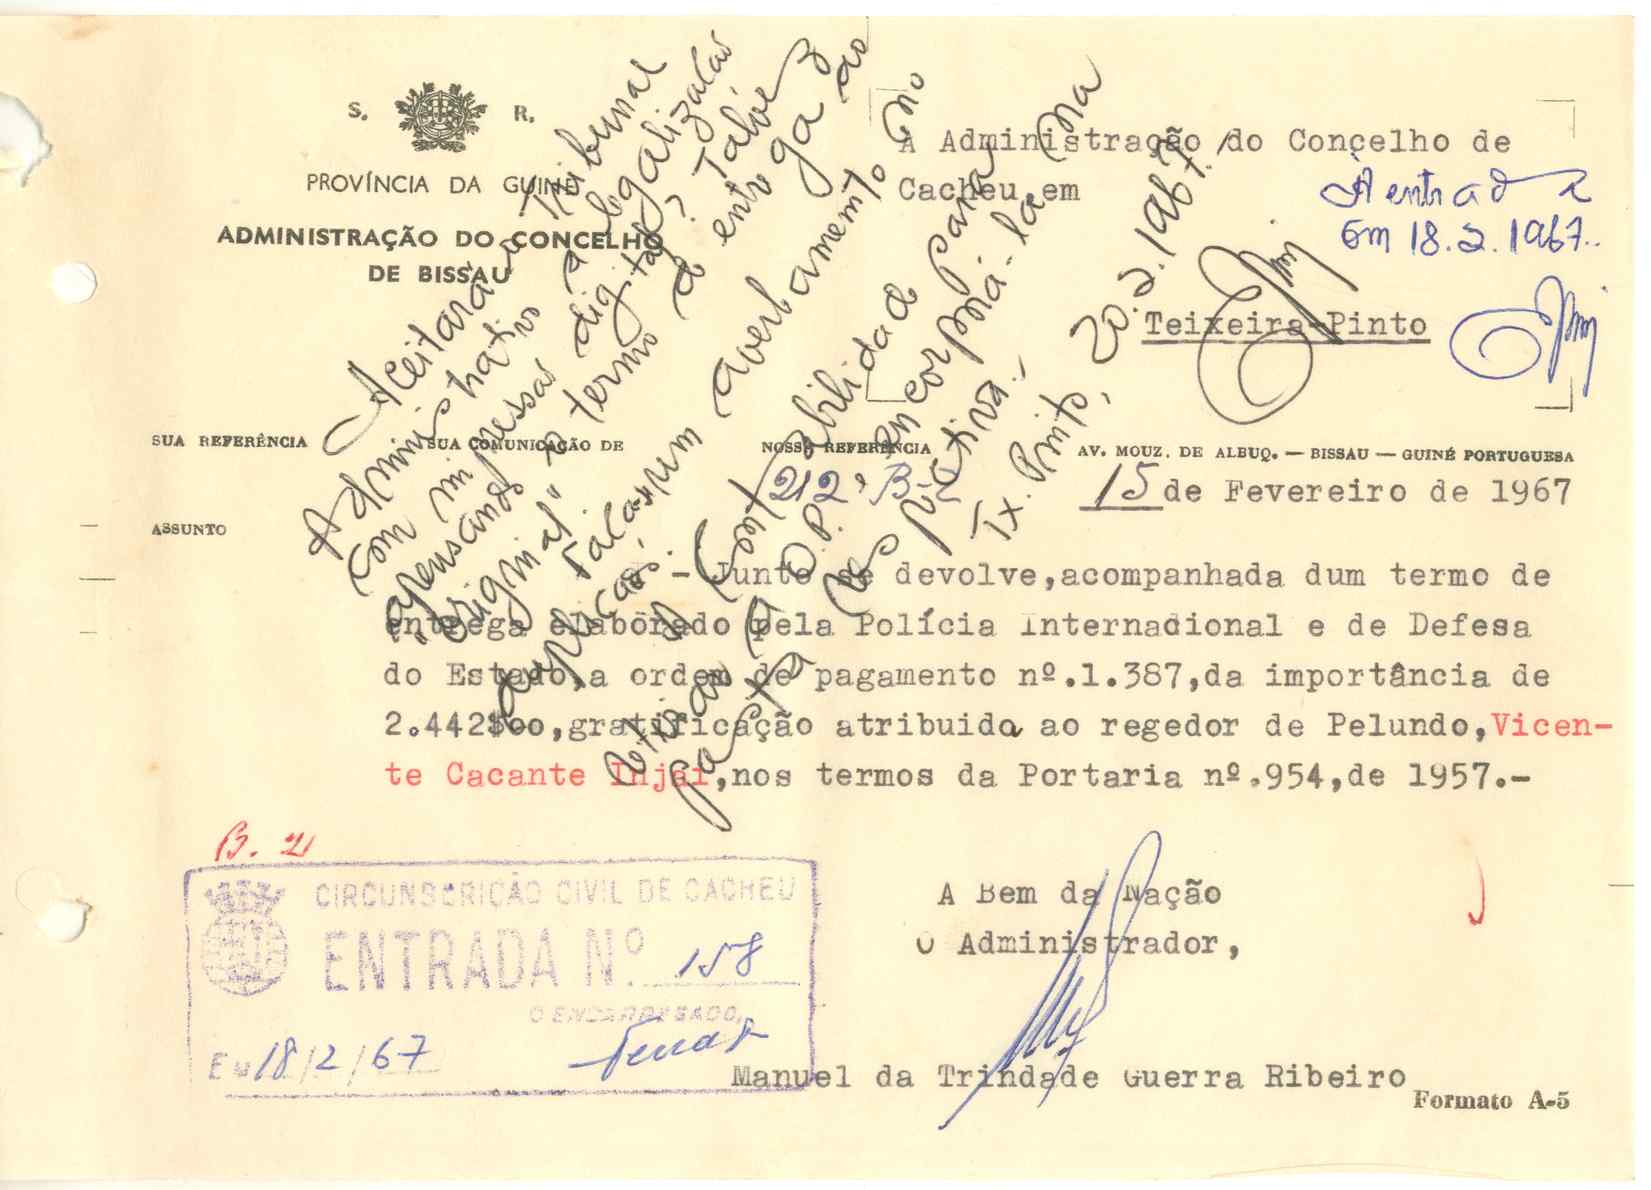 S. R.
PROVÍNCIA DA GUINÉ
ADMINISTRAÇÃO DO CONCELHO
DE BISSAU
À Administração do Concelho de
Cacheu,em
Teixeira-Pinto
À entrada
Em 18.2.1967..
SUA REFERÊNCIA
SUA COMUNICAÇÃO DE
NOSSA REFERÊNCIA
AV. MOUZ. DE ALBUQ. — BISSAU — GUINÉ PORTUGUESA
212
15 de Fevereiro de 1967
ASSUNTO
- Junto se devolve,acompanhada dum termo de
entrega elaborado pela Polícia Internacional e de Defesa
do Estado,a ordem de pagamento nº.1.387,da importância de
2.442$00,gratificação atribuida ao regedor de Pelundo,Vicen-
te Cacante Injai,nos termos da Portaria nº.954,de 1957.-
Aceitará o Tribunal
Administrativo a legalização
com impressão digital?
apensando o termo de entrega ao
"original" Talvez
Faça-se um averbamento no
duplicado.
À Contabilidade para
retirar a O.P. e encorporá-la na
pasta respectiva.-
Tx. Pinto, 20.2.1967.
B. 21
CIRCUNSCRIÇÃO CIVIL DE CACHEU
ENTRADA Nº. 158
O ENCARREGADO,
Em 18/2/67
A Bem da Nação
O Administrador,
Manuel da Trindade Guerra Ribeiro
Formato A-5